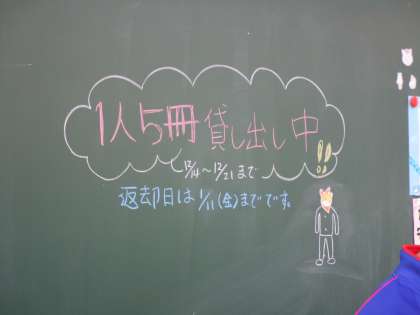 1人5冊貸し出し中!!
12/14〜12/21まで
返却日は1/11(金)までです。